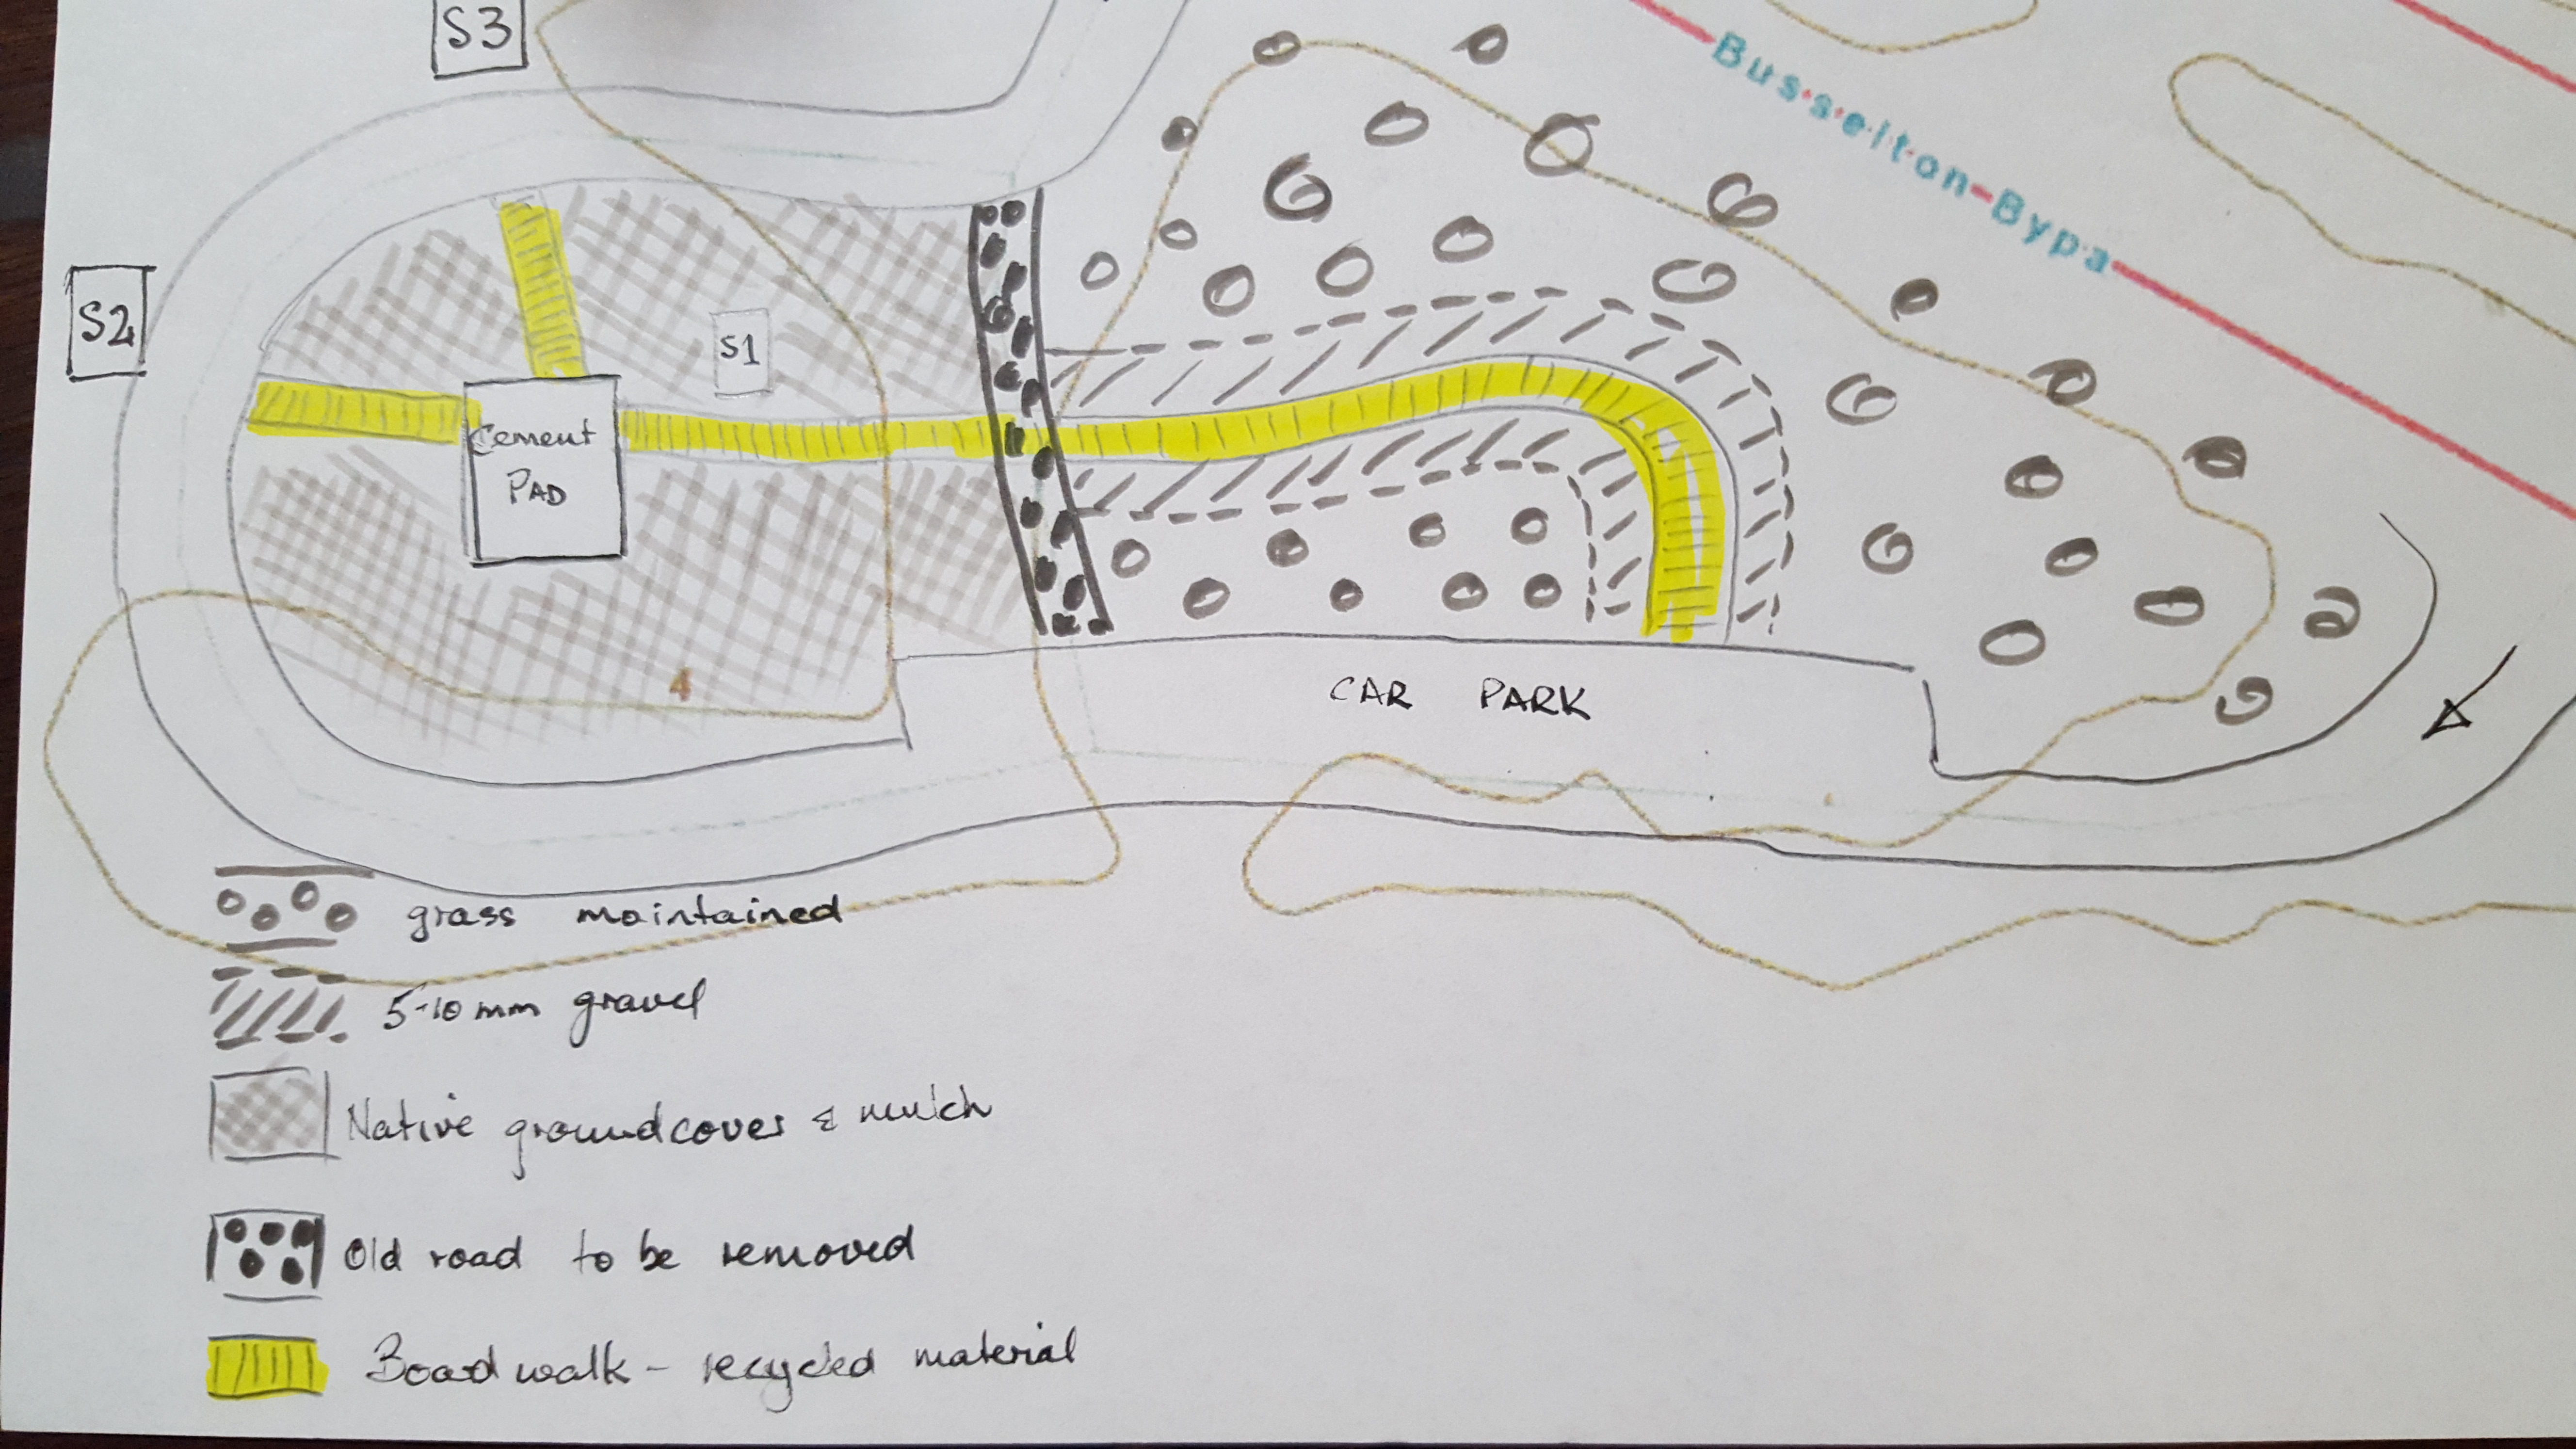 S3
Busselton Bypa
S2
S1
Cement
PAD
4
CAR PARK
grass maintained
5-10mm gravel
Native groundcover & mulch
Old road to be removed
Boadwalk - recycled material